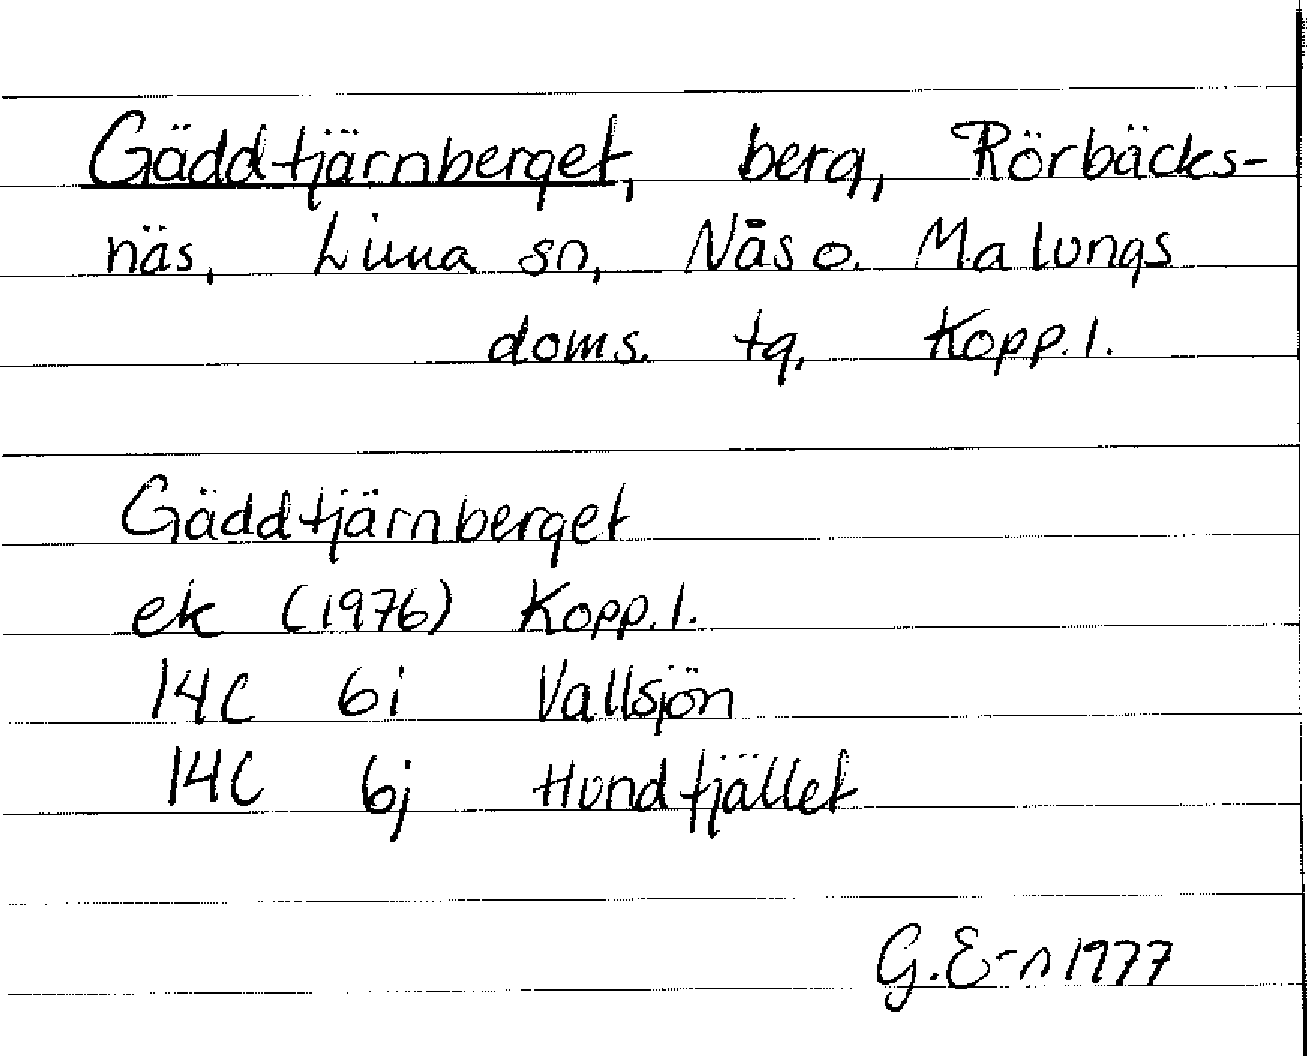 Gäddtjärnberget, berg, Rörbäcks-
näs, Lima sn, Nås o. Malungs
doms. tg, Kopp. l.
Gäddtjärnberget
ek (1976) Kopp. l.
14C 6i Vallsjön
14C 6j Hundfjället
G. E-n 1977